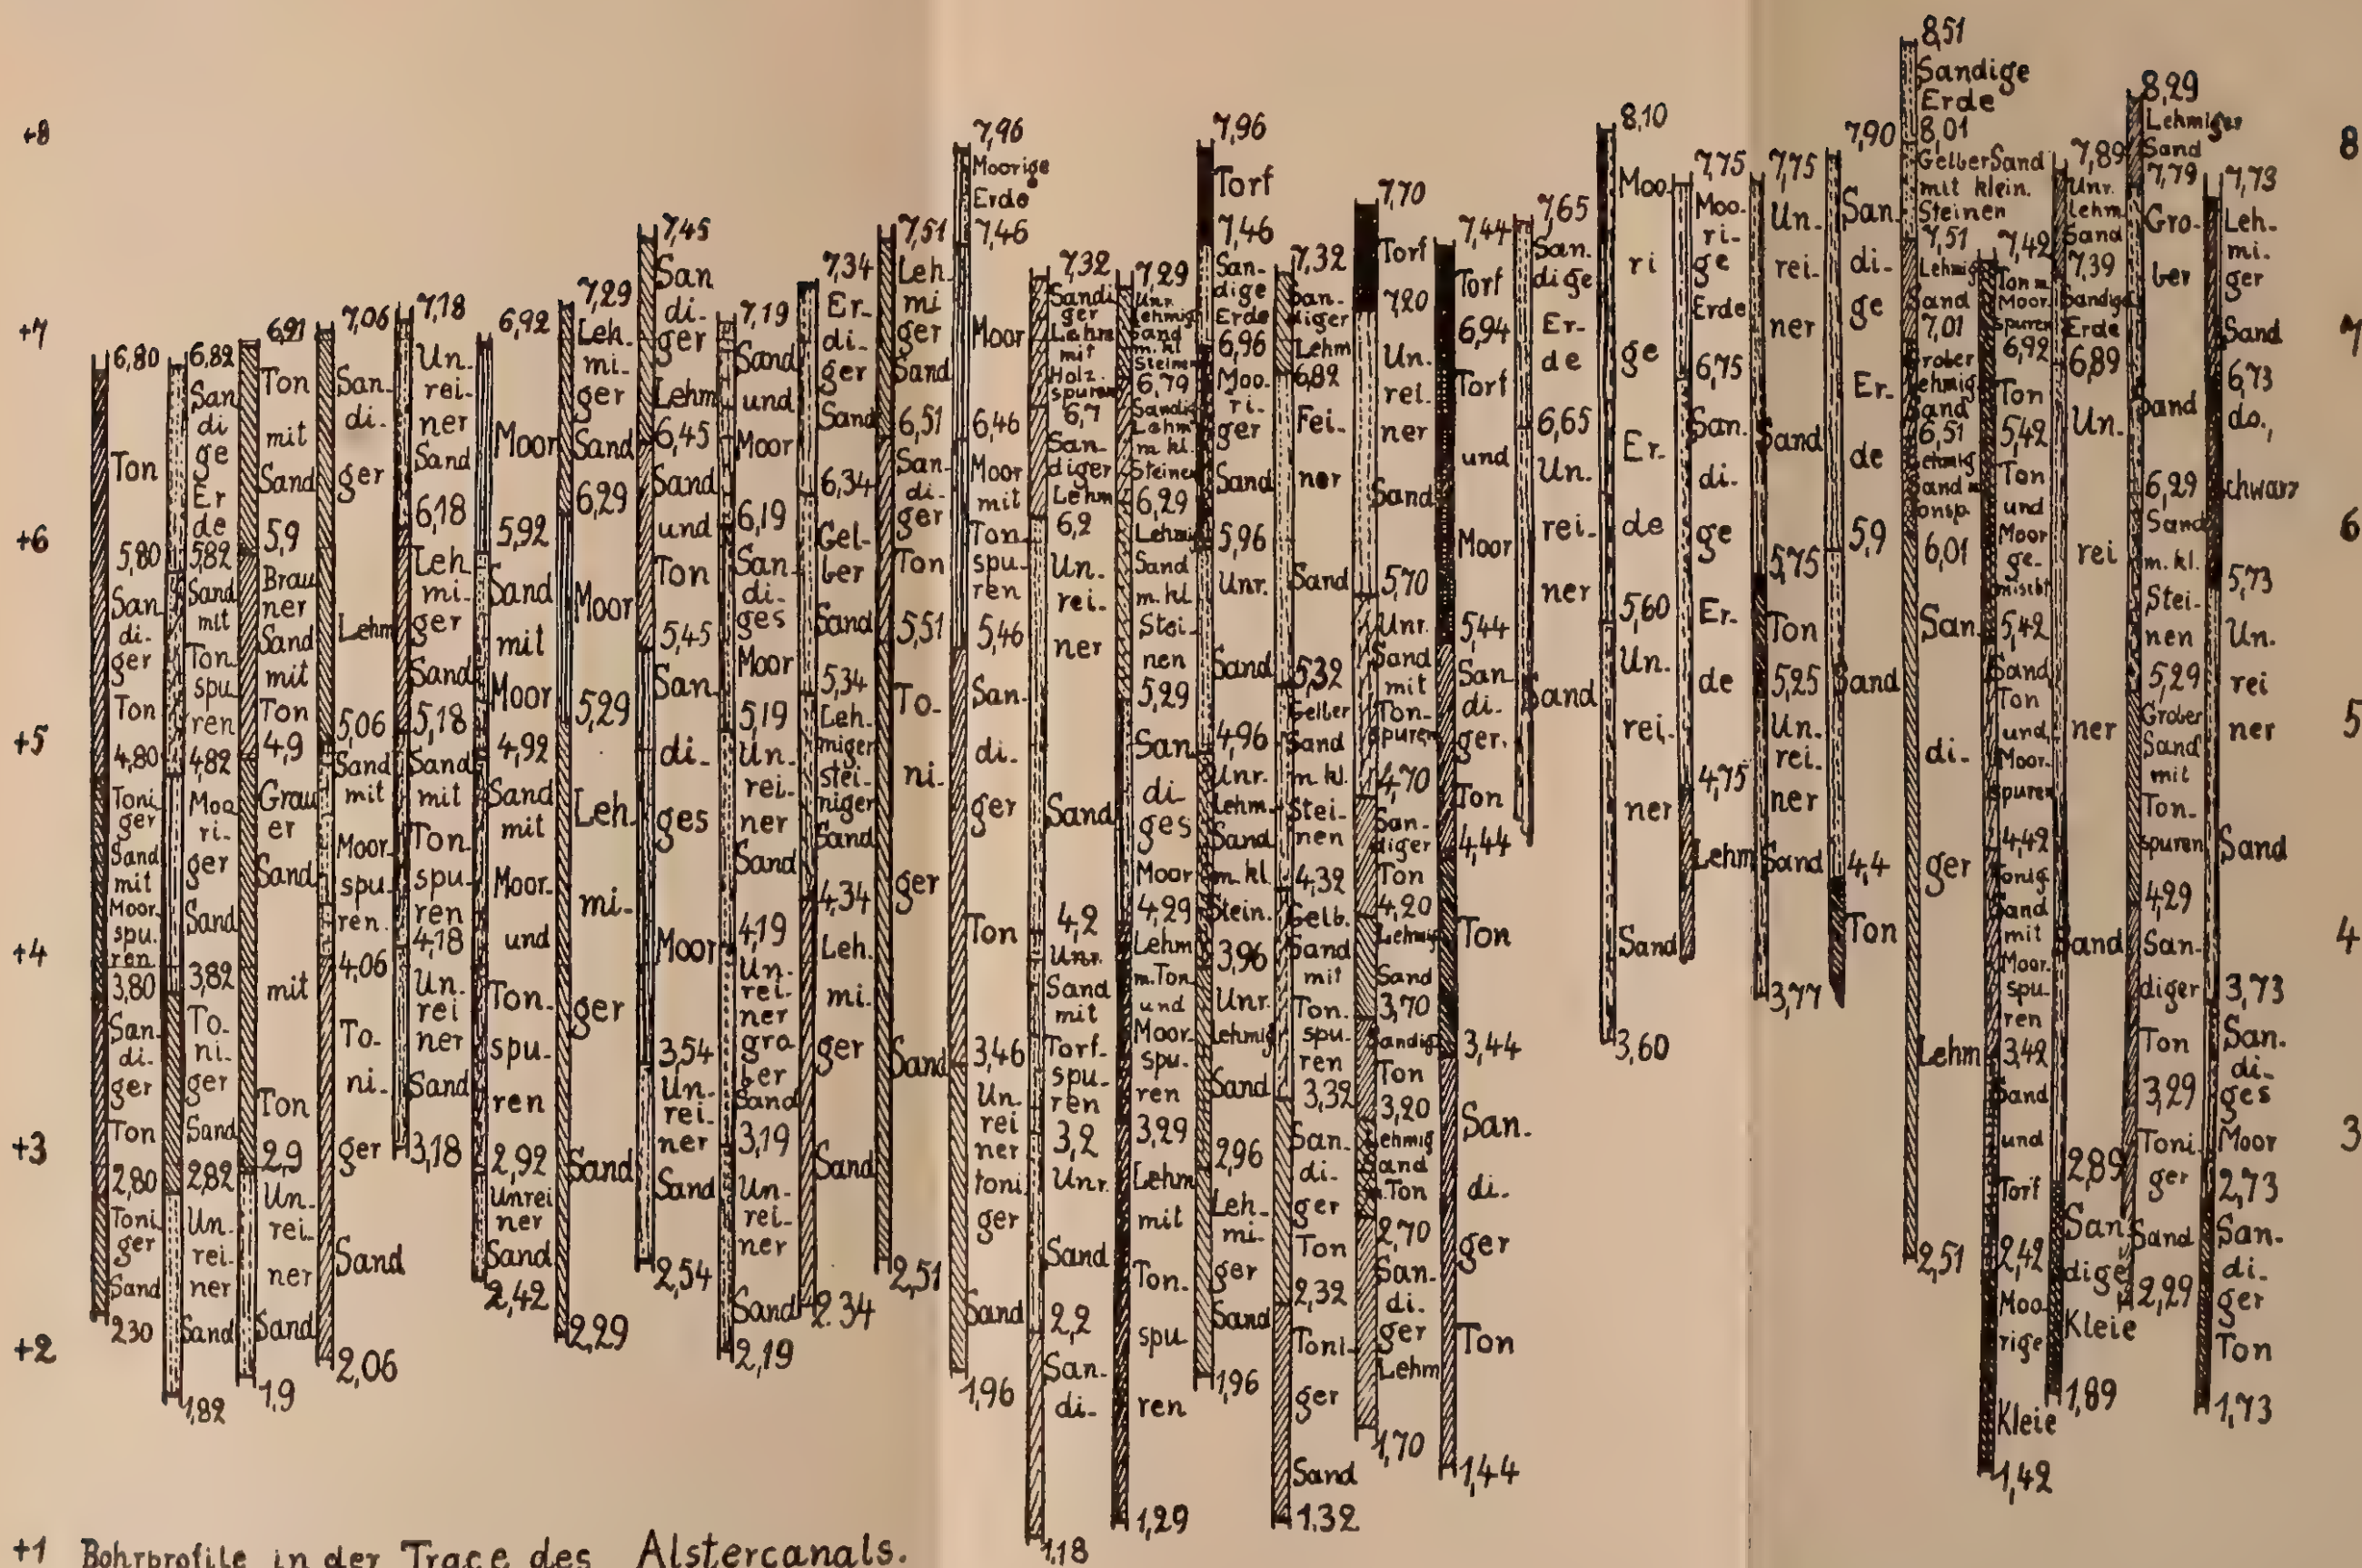 +8
+7
+6
+5
+4
+3
+2
+1
6,80
Ton
5,80
San
di-
ger
Ton
4,80
Toni
ger
Sand
mit
Moor
spu-
ren
3,80
San-
di-
ger
Ton
2,80
Toni
ger
Sand
2,30
6,82
San
di
ge
Er
de
5,82
Sand
mit
Ton
spu
ren
4,82
Moo
ri-
ger
Sand
3,82
To-
ni-
ger
Sand
2,82
Un-
rei-
ner
Sand
1,82
6,91
Ton
mit
Sand
5,9
Brau
ner
Sand
mit
Ton
4,9
Grau
er
Sand
mit
Ton
2,9
Un-
rei-
ner
Sand
1,9
7,06
San-
di-
ger
Lehm
5,06
Sand
mit
Moor-
spu-
ren.
4,06
To-
ni-
ger
Sand
2,06
7,18
Un-
rei-
ner
Sand
6,18
Leh
mi-
ger
Sand
5,18
Sand
mit
Ton-
spu-
ren
4,18
Un-
rei
ner
Sand
3,18
6,92
Moor
5,92
Sand
mit
Moor
4,92
Sand
mit
Moor-
und
Ton-
spu-
ren
2,92
Unrei
ner
Sand
2,42
7,29
Leh-
mi-
ger
Sand
6,29
Moor
5,29
Leh-
mi-
ger
Sand
2,29
7,45
San
di-
ger
Lehm
6,45
Sand
und
Ton
5,45
San-
di-
ges
Moor
3,54
Un-
rei-
ner
Sand
2,54
7,19
Sand
und
Moor
6,19
San-
di-
ges
Moor
5,19
Un-
rei-
ner
Sand
4,19
Un-
rei-
ner
gro
ber
Sand
3,19
Un-
rei-
ner
Sand
2,19
7,34
Er-
di-
ger
Sand
6,34
Gel-
ber
Sand
5,34
Leh-
miger
stei-
niger
Sand
4,34
Leh-
mi-
ger
Sand
2.34
7,51
Leh
mi
ger
Sand
6,51
San-
di-
ger
Ton
5,51
To-
ni-
ger
Sand
2,51
7,96
Moorige
Erde
7,46
Moor
6,46
Moor
mit
Ton
spu-
ren
5,46
San-
di-
ger
Ton
3,46
Un-
rei
ner
toni
ger
Sand
1,96
7,32
Sandi
ger
Lehm
mit
Holz
spuren
6,7
San-
diger
Lehm
6,2
Un-
rei-
ner
Sand
4,2
Unr.
Sand
mit
Torf-
spu-
ren
3,2
Unr.
Sand
2,2
San-
di-
1,18
7,29
Unr.
Lehmig
Sand
m. kl
Steinen
6,79
Sandig
Lehm
m kl.
Steinen
6,29
Lehmig
Sand
m. kl
Stei-
nen
5,29
San
di
ges
Moor
4,29
Lehm
m.Ton
und
Moor-
spu-
ren
3,29
Lehm
mit
Ton-
spu
ren
1,29
7,96
Torf
7,46
San-
dige
Erde
6,96
Moo-
ri-
ger
Sand
5,96
Unr.
Sand
4,96
Unr.
Lehm-
Sand
m. kl.
Stein.
3,96
Unr.
Lehmig
Sand
2,96
Leh-
mi-
ger
Sand
1,96
7,32
San-
diger
Lehm
6,82
Fei-
ner
Sand
5,32
Gelber
Sand
m kl.
Stei-
nen
4,32
Gelb.
Sand
mit
Ton-
spu-
ren
3,32
San-
di-
ger
Ton
2,32
Toni-
ger
Sand
1.32
7,70
Torf
7,20
Un-
rei-
ner
Sand
5,70
Unr.
Sand
mit
Ton-
spuren
4,70
San-
diger
Ton
4,20
Lehmig
Sand
3,70
Sandig
Ton
3,20
Lehmig
Sand
m.Ton
2,70
San-
di-
ger
Lehm
1,70
7,44
Torf
6,94
Torf
und
Moor
5,44
San
di-
ger.
Ton
4,44
Ton
3,44
San-
di-
ger
Ton
1,44
7,65
San-
dige
Er-
de
6,65
Un-
rei-
ner
Sand
8,10
Moo-
ri
ge
Er-
de
5,60
Un-
rei-
ner
Sand
3,60
7,75
Moo-
ri-
ge
Erde
6,75
San-
di-
ge
Er-
de
4,75
Lehm
7,75
Un-
rei-
ner
Sand
5,75
Ton
5,25
Un-
rei-
ner
Sand
3,77
7,90
San-
di-
ge
Er-
de
5,9
Sand
4,4
Ton
8,51
Sandige
Erde
8,01
Gelber Sand
mit klein.
Steinen
7,51
Lehmig
Sand
7,01
Grober
Lehmig
Sand
6,51
Lehmig
Sand m
6,01
San-
di-
ger
Lehm
2,51
7,42
Ton m
Moor
spuren
6,92
Ton
5,42
Ton
und
Moor
ge-
mischt
5,42
Sand
Ton
und
Moor-
spuren
4,42
Tonig
Sand
mit
Moor-
spu-
ren
3,42
Sand
und
Torf
2,42
Moo-
rige
Kleie
1,42
7,89
Unr.
Lehm
Sand
7,39
Sandige
Erde
6,89
Un-
rei
ner
Sand
2,89
San
dige
Kleie
1,89
8,29
Lehmiger
Sand
7,79
Gro-
ber
Sand
6,29
Sand
m. kl.
Stei-
nen
5,29
Grober
Sand
mit
Ton-
spuren
4,29
San-
diger
Ton
3,29
Toni-
ger
Sand
2,29
7,73
Leh-
mi-
ger
Sand
6,73
do.,
schwarz
5,73
Un-
rei
ner
Sand
3,73
San-
di-
ges
Moor
2,73
San-
di-
ger
Ton
1,73
8
7
6
5
4
3
Bohrprofile in der Trace des Alstercanals.